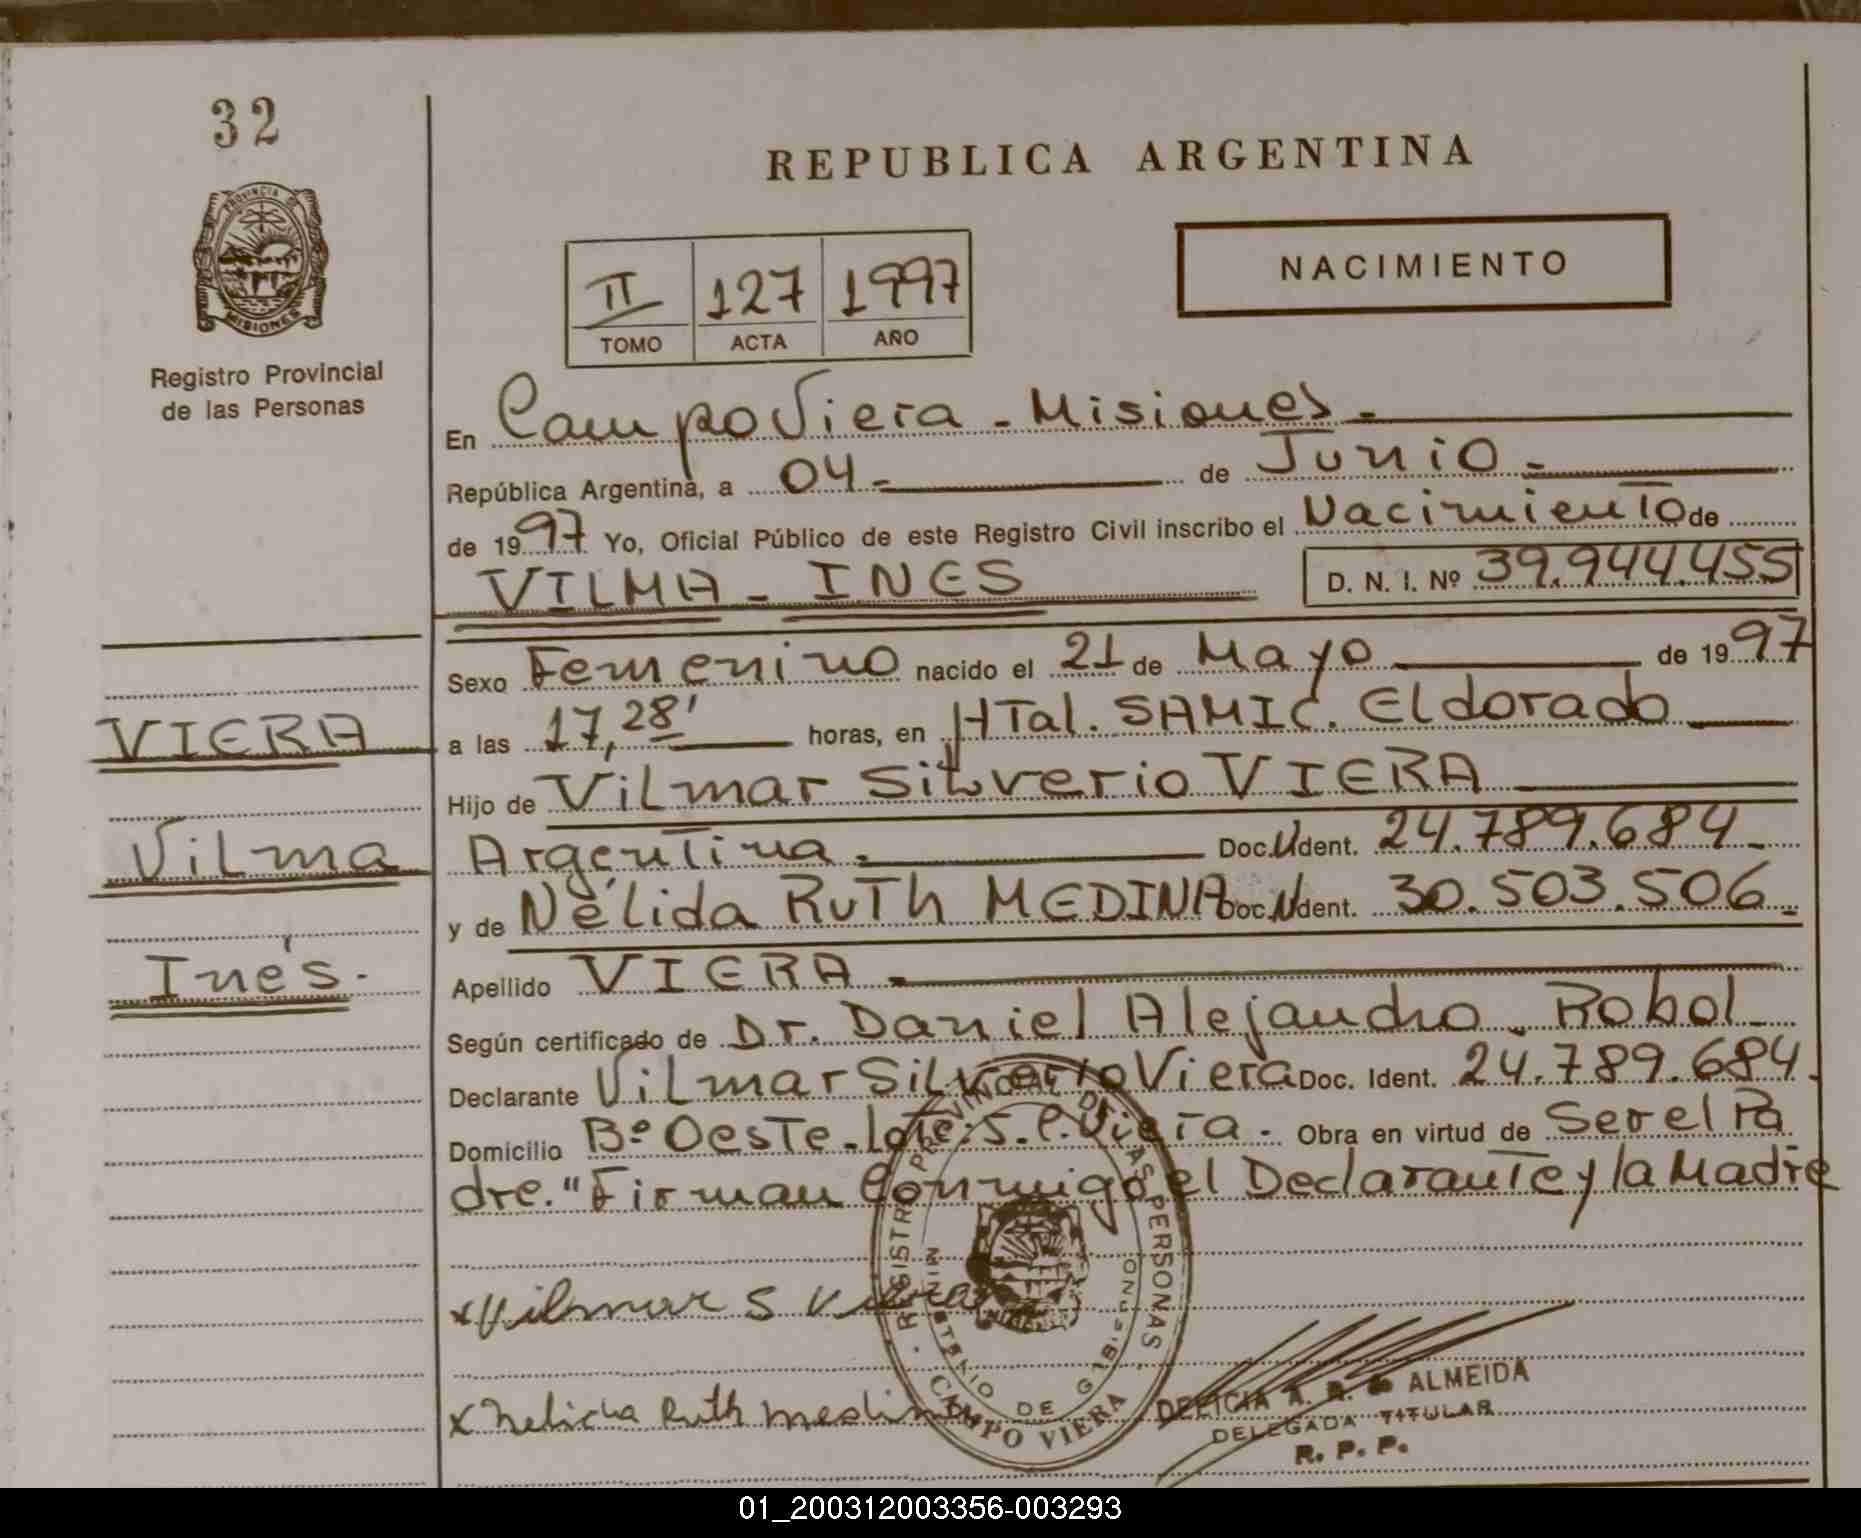 32
PROVINCIA DE
MISIONES
Registro Provincial
de las Personas
REPUBLICA ARGENTINA
II 127 1997
TOMO ACTA AÑO
NACIMIENTO
En Campo Viera - Misiones -
República Argentina, a 04 - de Junio -
de 1997 Yo, Oficial Público de este Registro Civil inscribo el Nacimiento de
VILMA - INES D. N. I. Nº 39.944.455
Sexo Femenino nacido el 21 de Mayo de 1997
VIERA
a las 17,28' horas, en HTal. SAMIC. Eldorado
Hijo de Vilmar Silverio VIERA
Vilma
Argentina - Doc. Ident. 24.789.684 -
y de Nélida Ruth MEDINA Doc. Ident. 30.503.506 -
Inés -
Apellido VIERA -
Según certificado de Dr. Daniel Alejandro Robol
Declarante Vilmar Silverio Viera Doc. Ident. 24.789.684.
Domicilio Bº Oeste - Lote: 5. C. Viera - Obra en virtud de Ser el Pa
dre. " Firman Conmigo el Declarante y la Madre
x Vilmar S Viera
x Nelida Ruth Medina
REGISTRO PROVINCIAL DE LAS PERSONAS
MINISTERIO DE GOBIERNO
CAMPO VIERA
DELICIA A. R. de ALMEIDA
DELEGADA TITULAR
R. P. P.
01_200312003356-003293